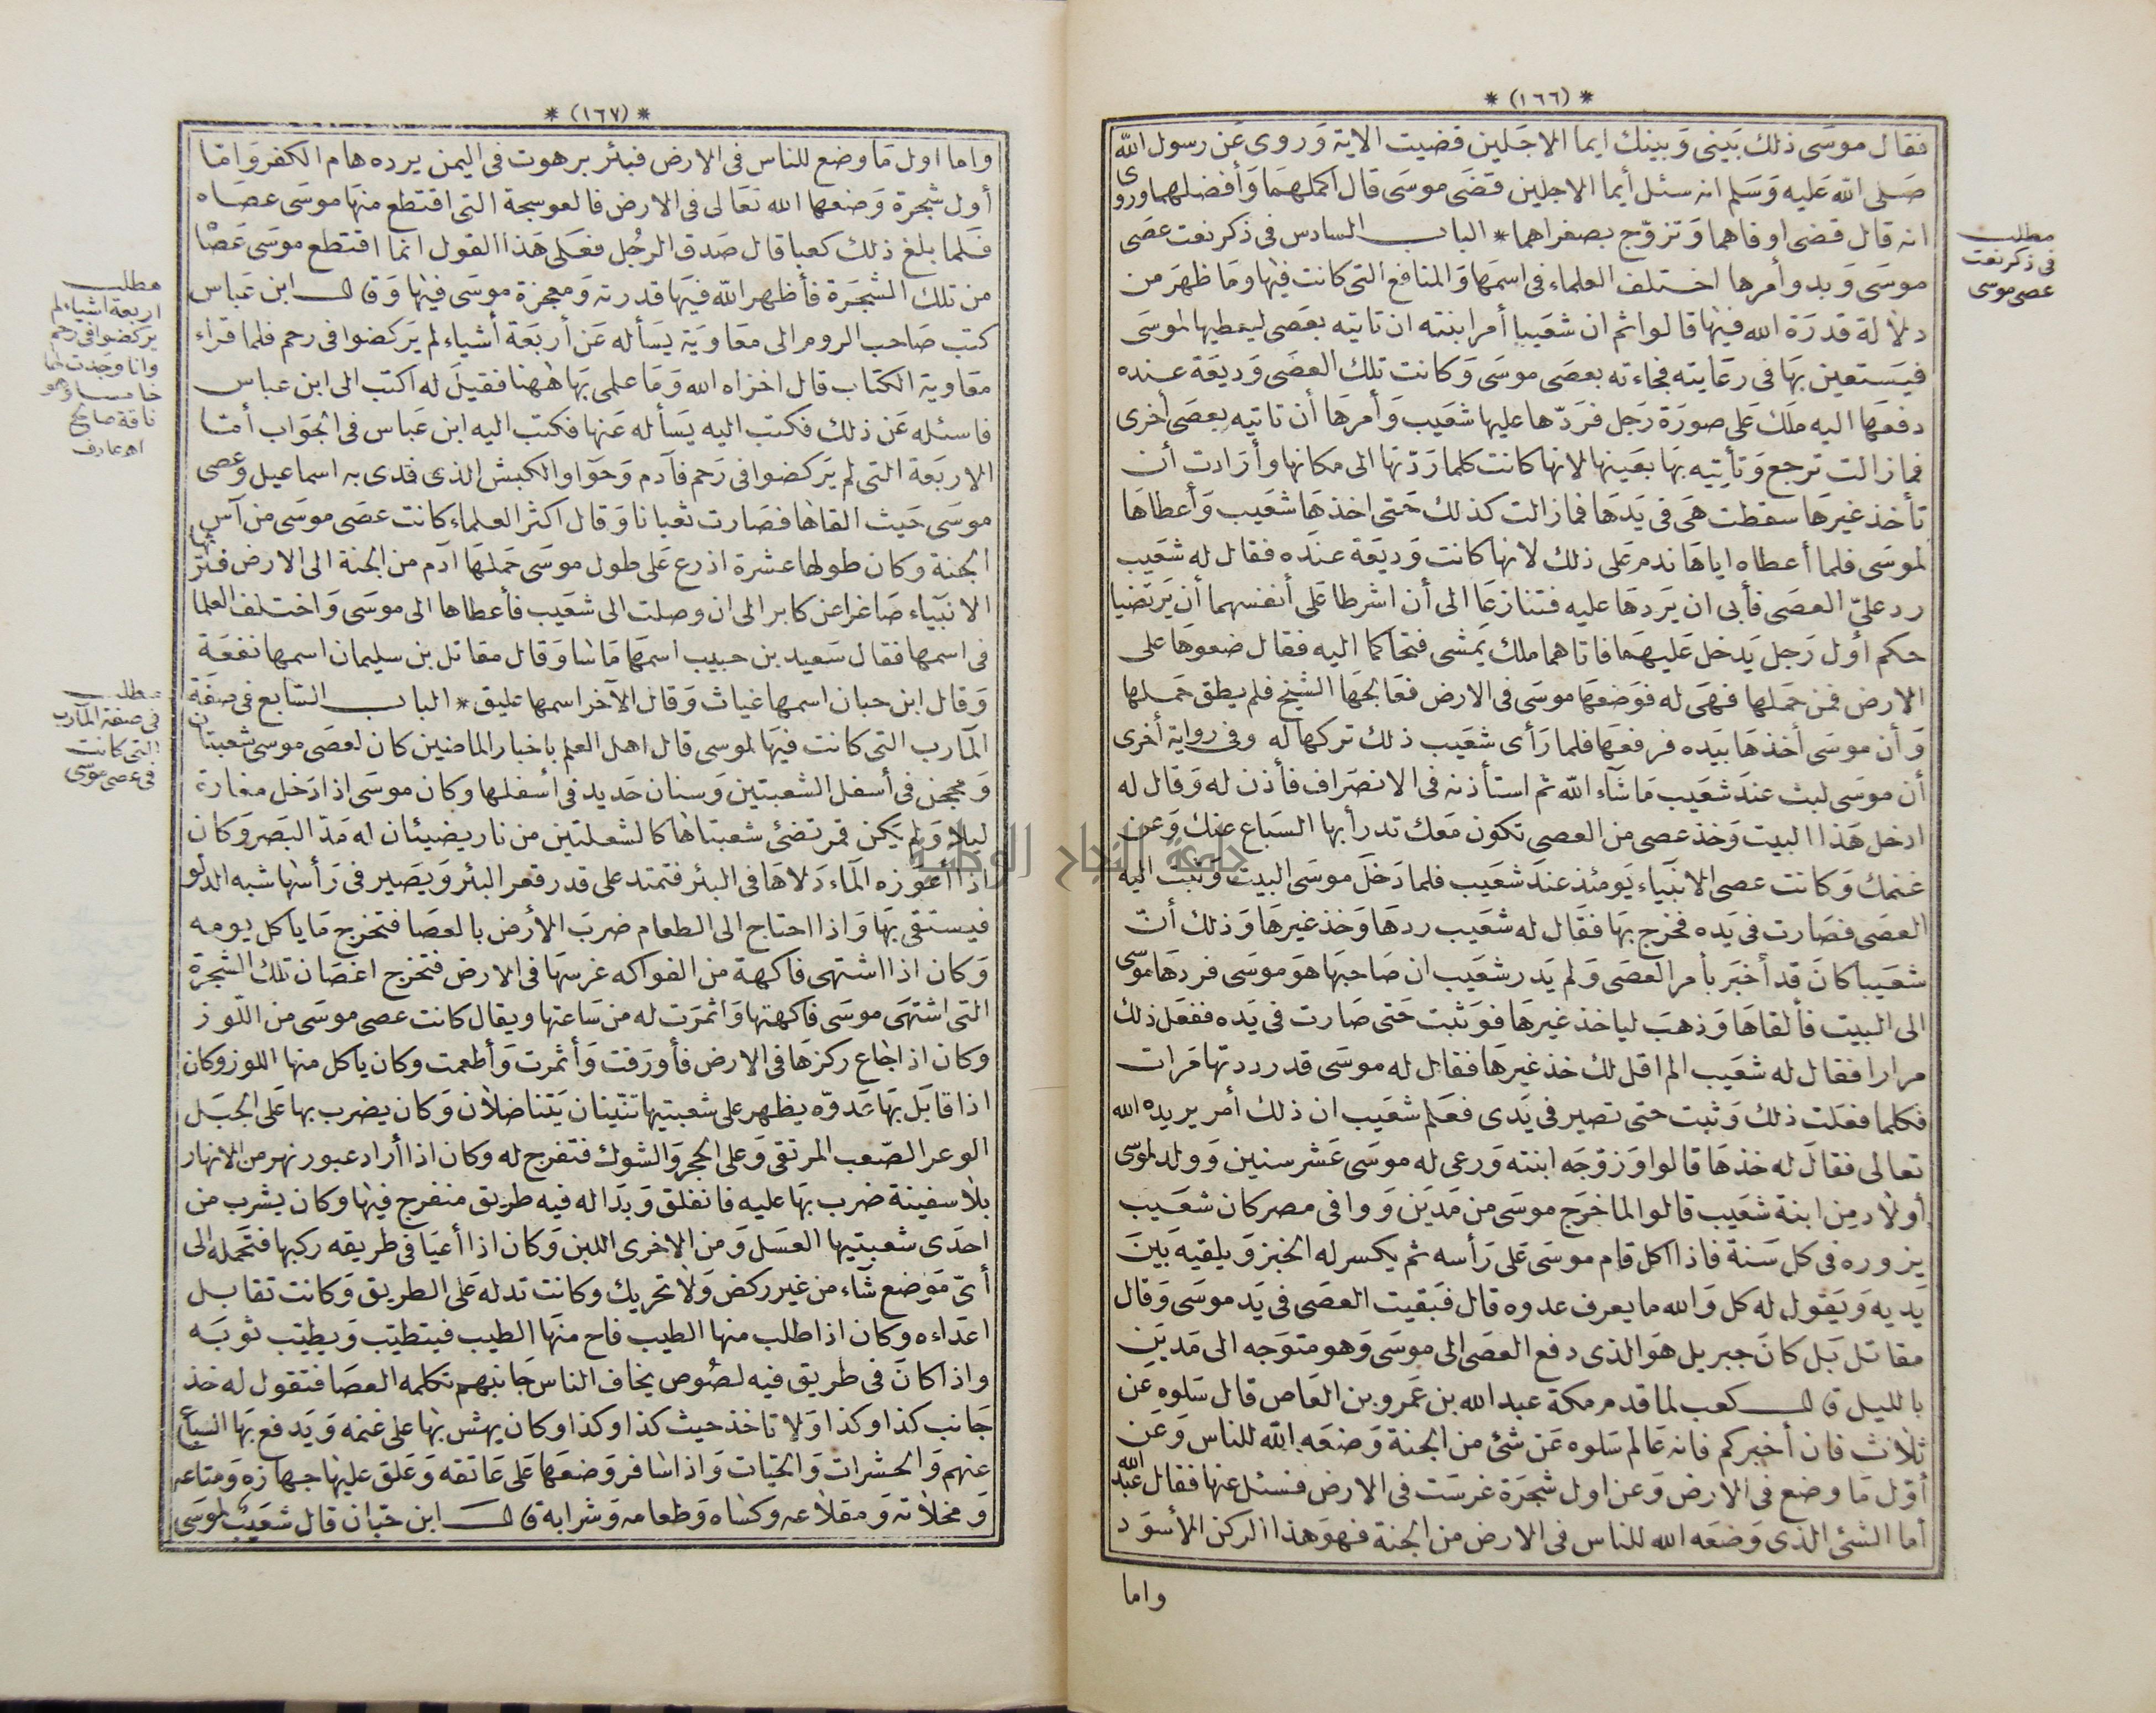 *(١٦٦)*
فقال موسى ذلك بينى وبينك ايما الاجلين قضيت الاية وروى عن رسول الله
صلى الله عليه وسلم انه سئل أيما الاجلين قضى موسى قال اكملهما وأفضلهما وروى
انه قال قضى اوفاهما وتزوج بصغراهما * الباب السادس فى ذكر نعت عصى
موسى وبدو أمرها اختلف العلماء فى اسمها والمنافع التى كانت فيها وما ظهر من
دلالة قدرة الله فيها قالوا ثم ان شعيبا أمر ابنته ان تاتيه بعصى ليعطيها لموسى
فيستعين بها فى رعايته فجاءته بعصى موسى وكانت تلك العصى وديعة عنده
دفعها اليه ملك على صورة رجل فردها عليها شعيب وأمرها أن تاتيه بعصى أخرى
فما زالت ترجع وتأتيه بها بعينها لانها كانت كلما ردتها الى مكانها وأرادت أن
تأخذ غيرها سقطت هى فى يدها فما زالت كذلك حتى اخذها شعيب وأعطاها
لموسى فلما أعطاه اياها ندم على ذلك لانها كانت وديعة عنده فقال له شعيب
رد علىّ العصى فأبى ان يردها عليه فتنازعا الى أن اشرطا على أنفسهما أن يرتضيا
حكم أول رجل يدخل عليهما فاتاهما ملك يمشى فتحاكما اليه فقال ضعوها على
الارض فمن حملها فهى له فوضعها موسى فى الارض فعالجها الشيخ فلم يطق حملها
وأن موسى أخذها بيده فرفعها فلما رأى شعيب ذلك تركها له وفى رواية أخرى
أن موسى لبث عند شعيب ما شاء الله ثم استأذنه فى الانصراف فأذن له وقال له
ادخل هذا البيت وخذ عصى من العصى تكون معك تدرأ بها السباع عنك وعن
غنمك وكانت عصى الانبياء يومئذ عند شعيب فلما دخل موسى البيت وثبت اليه
العصى فصارت فى يده فخرج بها فقال له شعيب ردها وخذ غيرها وذلك أنّ
شعيبا كان قد أخبر بأمر العصى ولم يدر شعيب ان صاحبها هو موسى فردها موسى
الى البيت فألقاها وذهب لياخذ غيرها فوثبت حتى صارت فى يده ففعل ذلك
مرارا فقال له شعيب الم اقل لك خذ غيرها فقال له موسى قد رددتها مرات
فكلما فعلت ذلك وثبت حتى تصير فى يدى فعلم شعيب ان ذلك أمر يريده الله
تعالى فقال له خذها قالوا وزوجه ابنته ورعى له موسى عشر سنين وولد لموسى
أولاد من ابنة شعيب قالوا لما خرج موسى من مدين ووافى مصر كان شعيب
يزوره فى كل سنة فاذا اكل قام موسى على رأسه ثم يكسر له الخبز ويلقيه بين
يديه ويقول له كل والله ما يعرف عدوه قال فبقيت العصى فى يد موسى وقال
مقاتل بل كان جبريل هو الذى دفع العصى الى موسى وهو متوجه الى مدين
بالليل قال كعب لما قدم مكة عبد الله بن عمرو بن العاص قال سلوه عن
ثلاث فان أخبركم فانه عالم سلوه عن شئ من الجنة وضعه الله للناس وعن
أوّل ما وضع فى الارض وعن اول شجرة غرست فى الارض فسئل عنها فقال عبد الله
أما الشئ الذى وضعه الله للناس فى الارض من الجنة فهو هذا الركن الأسود
واما
مطلب
فى ذكر نعت
عصى موسى
*(١٦٧)*
واما اول ما وضع للناس فى الارض فبئر برهوت فى اليمن يرده هام الكفر وامّا
أول شجرة وضعها الله تعالى فى الارض فالعوسجة التى اقتطع منها موسى عصاه
فلما بلغ ذلك كعبا قال صدق الرجل فعلى هذا القول انما اقتطع موسى عصا
من تلك الشجرة فأظهر الله فيها قدرته ومعجزة موسى فيها وقال ابن عباس
كتب صاحب الروم الى معاوية يسأله عن أربعة أشياء لم يركضوا فى رحم فلما قراء
معاوية الكتاب قال اخزاه الله وما علمى بها ههنا فقيل له اكتب الى ابن عباس
فاسئله عن ذلك فكتب اليه يسأله عنها فكتب اليه ابن عباس فى الجواب أمّا
الاربعة التى لم يركضوا فى رحم فآدم وحوا والكبش الذى فدى به اسماعيل وعصى
موسى حيث القاها فصارت ثعبانا وقال اكثر العلماء كانت عصى موسى من آس
الجنة وكان طولها عشرة اذرع على طول موسى حملها آدم من الجنة الى الارض فتوارثها
الانبياء صاغرا عن كابر الى ان وصلت الى شعيب فأعطاها الى موسى واختلف العلما
فى اسمها فقال سعيد بن حبيب اسمها ماشا وقال مقاتل بن سليمان اسمها نفعة
وقال ابن حبان اسمها غياث وقال الآخر اسمها عليق * الباب السّابع فى صفة
المآرب التى كانت فيها لموسى قال اهل العلم باخبار الماضين كان لعصى موسى شعبتان
ومحجن فى أسفل الشعبتين وسنان حديد فى أسفلها وكان موسى اذا دخل مغارة
ليلا ولم يكن قمر تضئ شعبتاها كالشعلتين من نار يضيئان له مدّ البصر وكان
اذا أعوزه الماء دلاها فى البئر فتمتد على قدر قعر البئر ويصير فى رأسها شبه الدلو
فيستقى بها واذا احتاج الى الطعام ضرب الأرض بالعصا فتخرج ما ياكل يومه
وكان اذا اشتهى فاكهة من الفواكه غرسها فى الارض فتخرج اغصان تلك الشجرة
التى اشتهى موسى فاكهتها واثمرت له من ساعتها ويقال كانت عصى موسى من اللّوز
وكان اذا جاع ركزها فى الارض فأورقت وأثمرت وأطعمت وكان ياكل منها اللوز وكان
اذا قابل بها عدوّه يظهر على شعبتيها تنّينان يتناضلان وكان يضرب بها على الجبل
الوعر الصّعب المرتقى وعلى الحجر والشوك فتفرج له وكان اذا أراد عبور نهر من الانهار
بلا سفينة ضرب بها عليه فانفلق وبدا له فيه طريق منفرج فيها وكان يشرب من
احدى شعبتيها العسل ومن الاخرى اللبن وكان اذا أعيا فى طريقه ركبها فتحمله الى
أىّ موضع شاء من غير ركض ولا تحريك وكانت تدله على الطريق وكانت تقابل
اعداءه وكان اذا طلب منها الطيب فاح منها الطيب فيتطيّب ويطيّب ثوبه
واذا كان فى طريق فيه لصوص يخاف الناس جانبهم تكلمه العصا فتقول له خذ
جانب كذا وكذا ولا تاخذ حيث كذا وكذا وكان يهش بها على غنمه ويدفع بها السباع
عنهم والحشرات والحيّات واذا سافر وضعها على عاتقه وعلق عليها جهازه ومتاعه
ومخلاته ومقلاعه وكساه وطعامه وشرابه قال ابن حبّان قال شعيب لموسى
مطلب
اربعة اشياء لم
يركضوا فى رحم
وانا وجدت لها
خامسا وهو
ناقة صالح
اهـ عارف
مطلب
فى صفة المآرب
التى كانت
فى عصى موسى
جامعة النجاح الوطنية